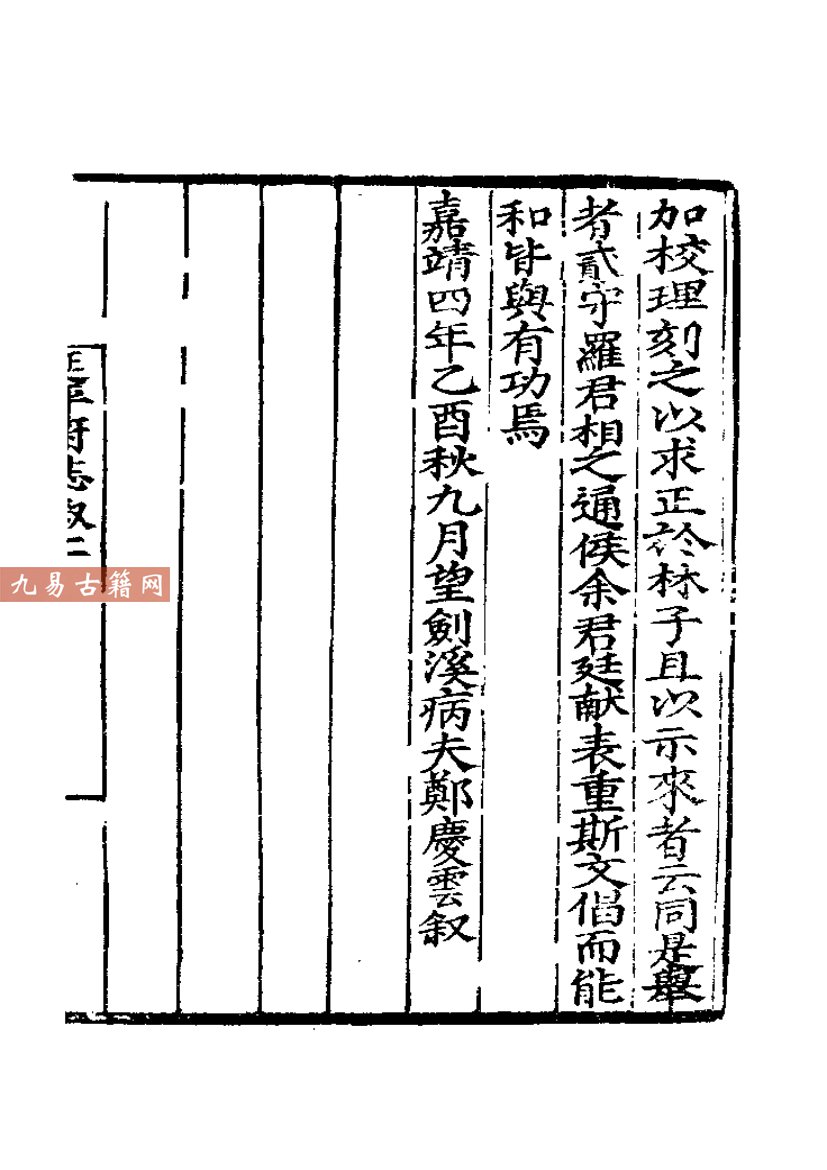 加校理刻之以求正於林子且以示來者云同是舉
者貳守羅君相之通侯余君廷献表重斯文倡而能
和皆與有功焉
嘉靖四年乙酉秋九月望劍溪病夫鄭慶雲叙
延平府志叙二
九易古籍网